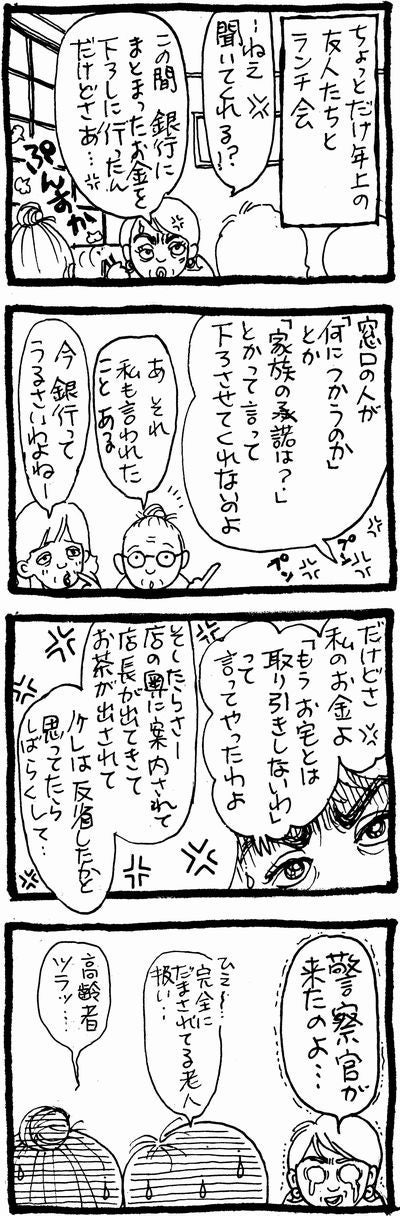 ちょっとだけ年上の
友人たちと
ランチ会
…ねえ
聞いてくれる!?
この間 銀行に
まとまったお金を
下ろしに行ったん
だけどさあ…
ぷんすか
窓口の人が
「何につかうのか」
とか
「家族の承諾は?」
とかって言って
下ろさせてくれないのよ
プンプン
あ それ
私も言われた
こと ある
今 銀行って
うるさいわよねー
だけどさ
私のお金よ
「もう お宅とは
取り引きしないわ」
って
言ってやったわよ
そしたらさー
店の奥に案内されて
店長が出てきて
お茶が出されて
ノケレは反省したかと
思ってたら
しばらくして…
警察官が
来たのよ…
ひえ〜…
完全に
だまされてる老人
扱い…
高齢者
ツラッ…